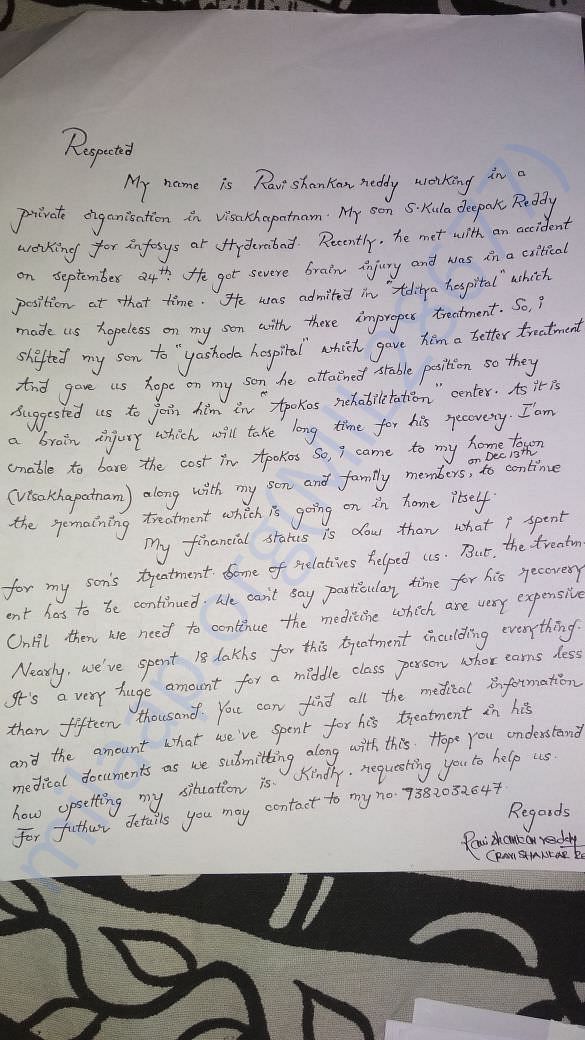 Respected
My name is Ravi shankar reddy working in a
private organisation in visakhapatnam. My son S.Kula deepak Reddy
working for infosys at Hyderabad. Recently, he met with an accident
on september 24th. He got severe brain injury and was in a critical
position at that time. He was admited in "Aditya hospital" which
made us hopeless on my son with there improper treatment. So, i
shifted my son to "yashoda hospital" which gave him a better treatment
And gave us hope on my son he attained stable position so they
suggested us to join him in "Apokos rehabiletation" center. As it is
a brain injury which will take long time for his recovery. I'am
unable to bare the cost in Apokos So, i came to my home town
on Dec 13th
(visakhapatnam) along with my son and family members, to continue
the remaining treatment which is going on in home itself.
My financial status is Low than what i spent
for my son's treatment. Some of relatives helped us. But, the treatm-
ent has to be continued. We can't say particular time for his recovery
Until then we need to continue the medicine which are very expensive
Nearly, we've spent 18 lakhs for this treatment inculding everything.
It's a very huge amount for a middle class person whor earns less
than fifteen thousand. You can find all the medical information
and the amount what we've spent for his treatment in his
medical documents as we submitting along with this. Hope you understand
how upsetting my situation is. Kindly, requesting you to help us.
For futhur details you may contact to my no. 9382032647.
Regards
Ravi shankar reddy
(RAVI SHANKAR Re
milaap.org(MIL123677)